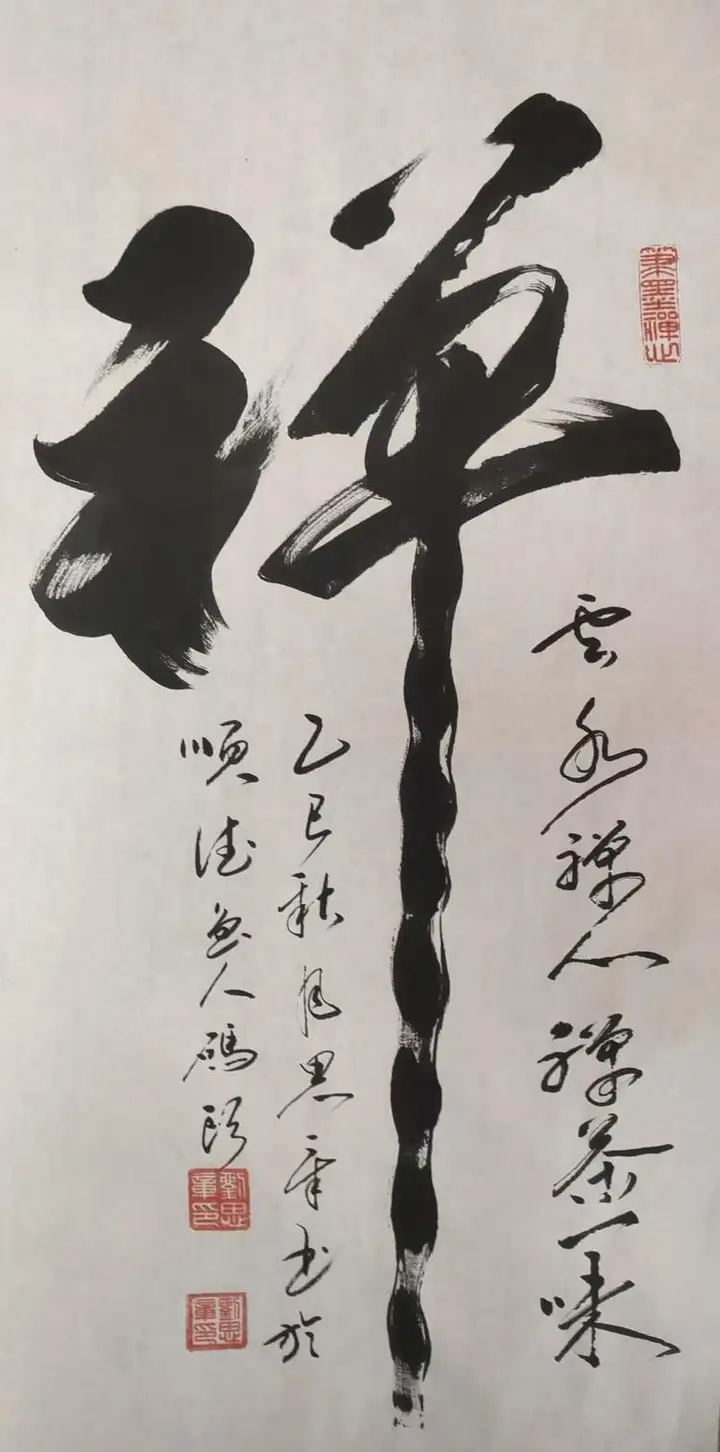 禪
筆墨禪心
雲水禪心禪茶一味
乙巳秋月思章书於
順德魚人碼頭
劉思章印
劉思章印